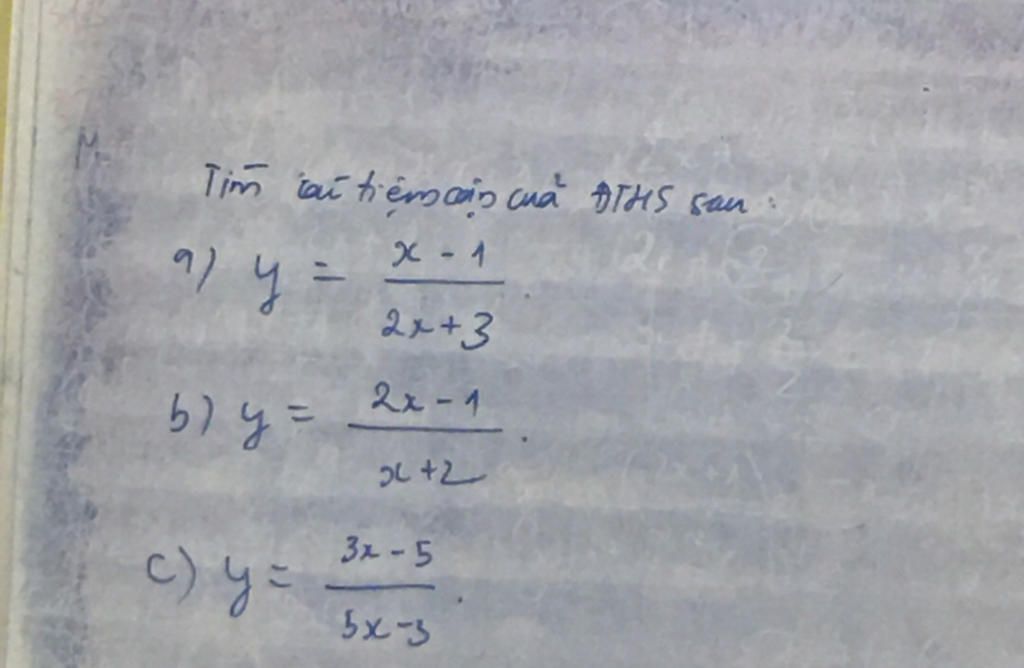 Tìm các tiệm cận của ĐTHS sau:
a) y = \frac{x - 1}{2x + 3}.
b) y = \frac{2x - 1}{x + 2}.
c) y = \frac{3x - 5}{5x - 3}.